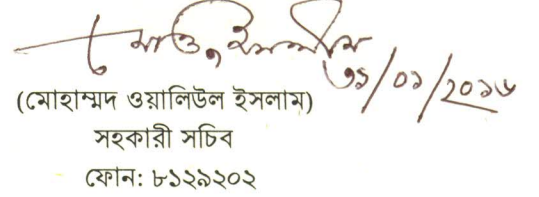 ৩১/০১/২০১৬
(মোহাম্মদ ওয়ালিউল ইসলাম)
সহকারী সচিব
ফোন: ৮১২৯২০২